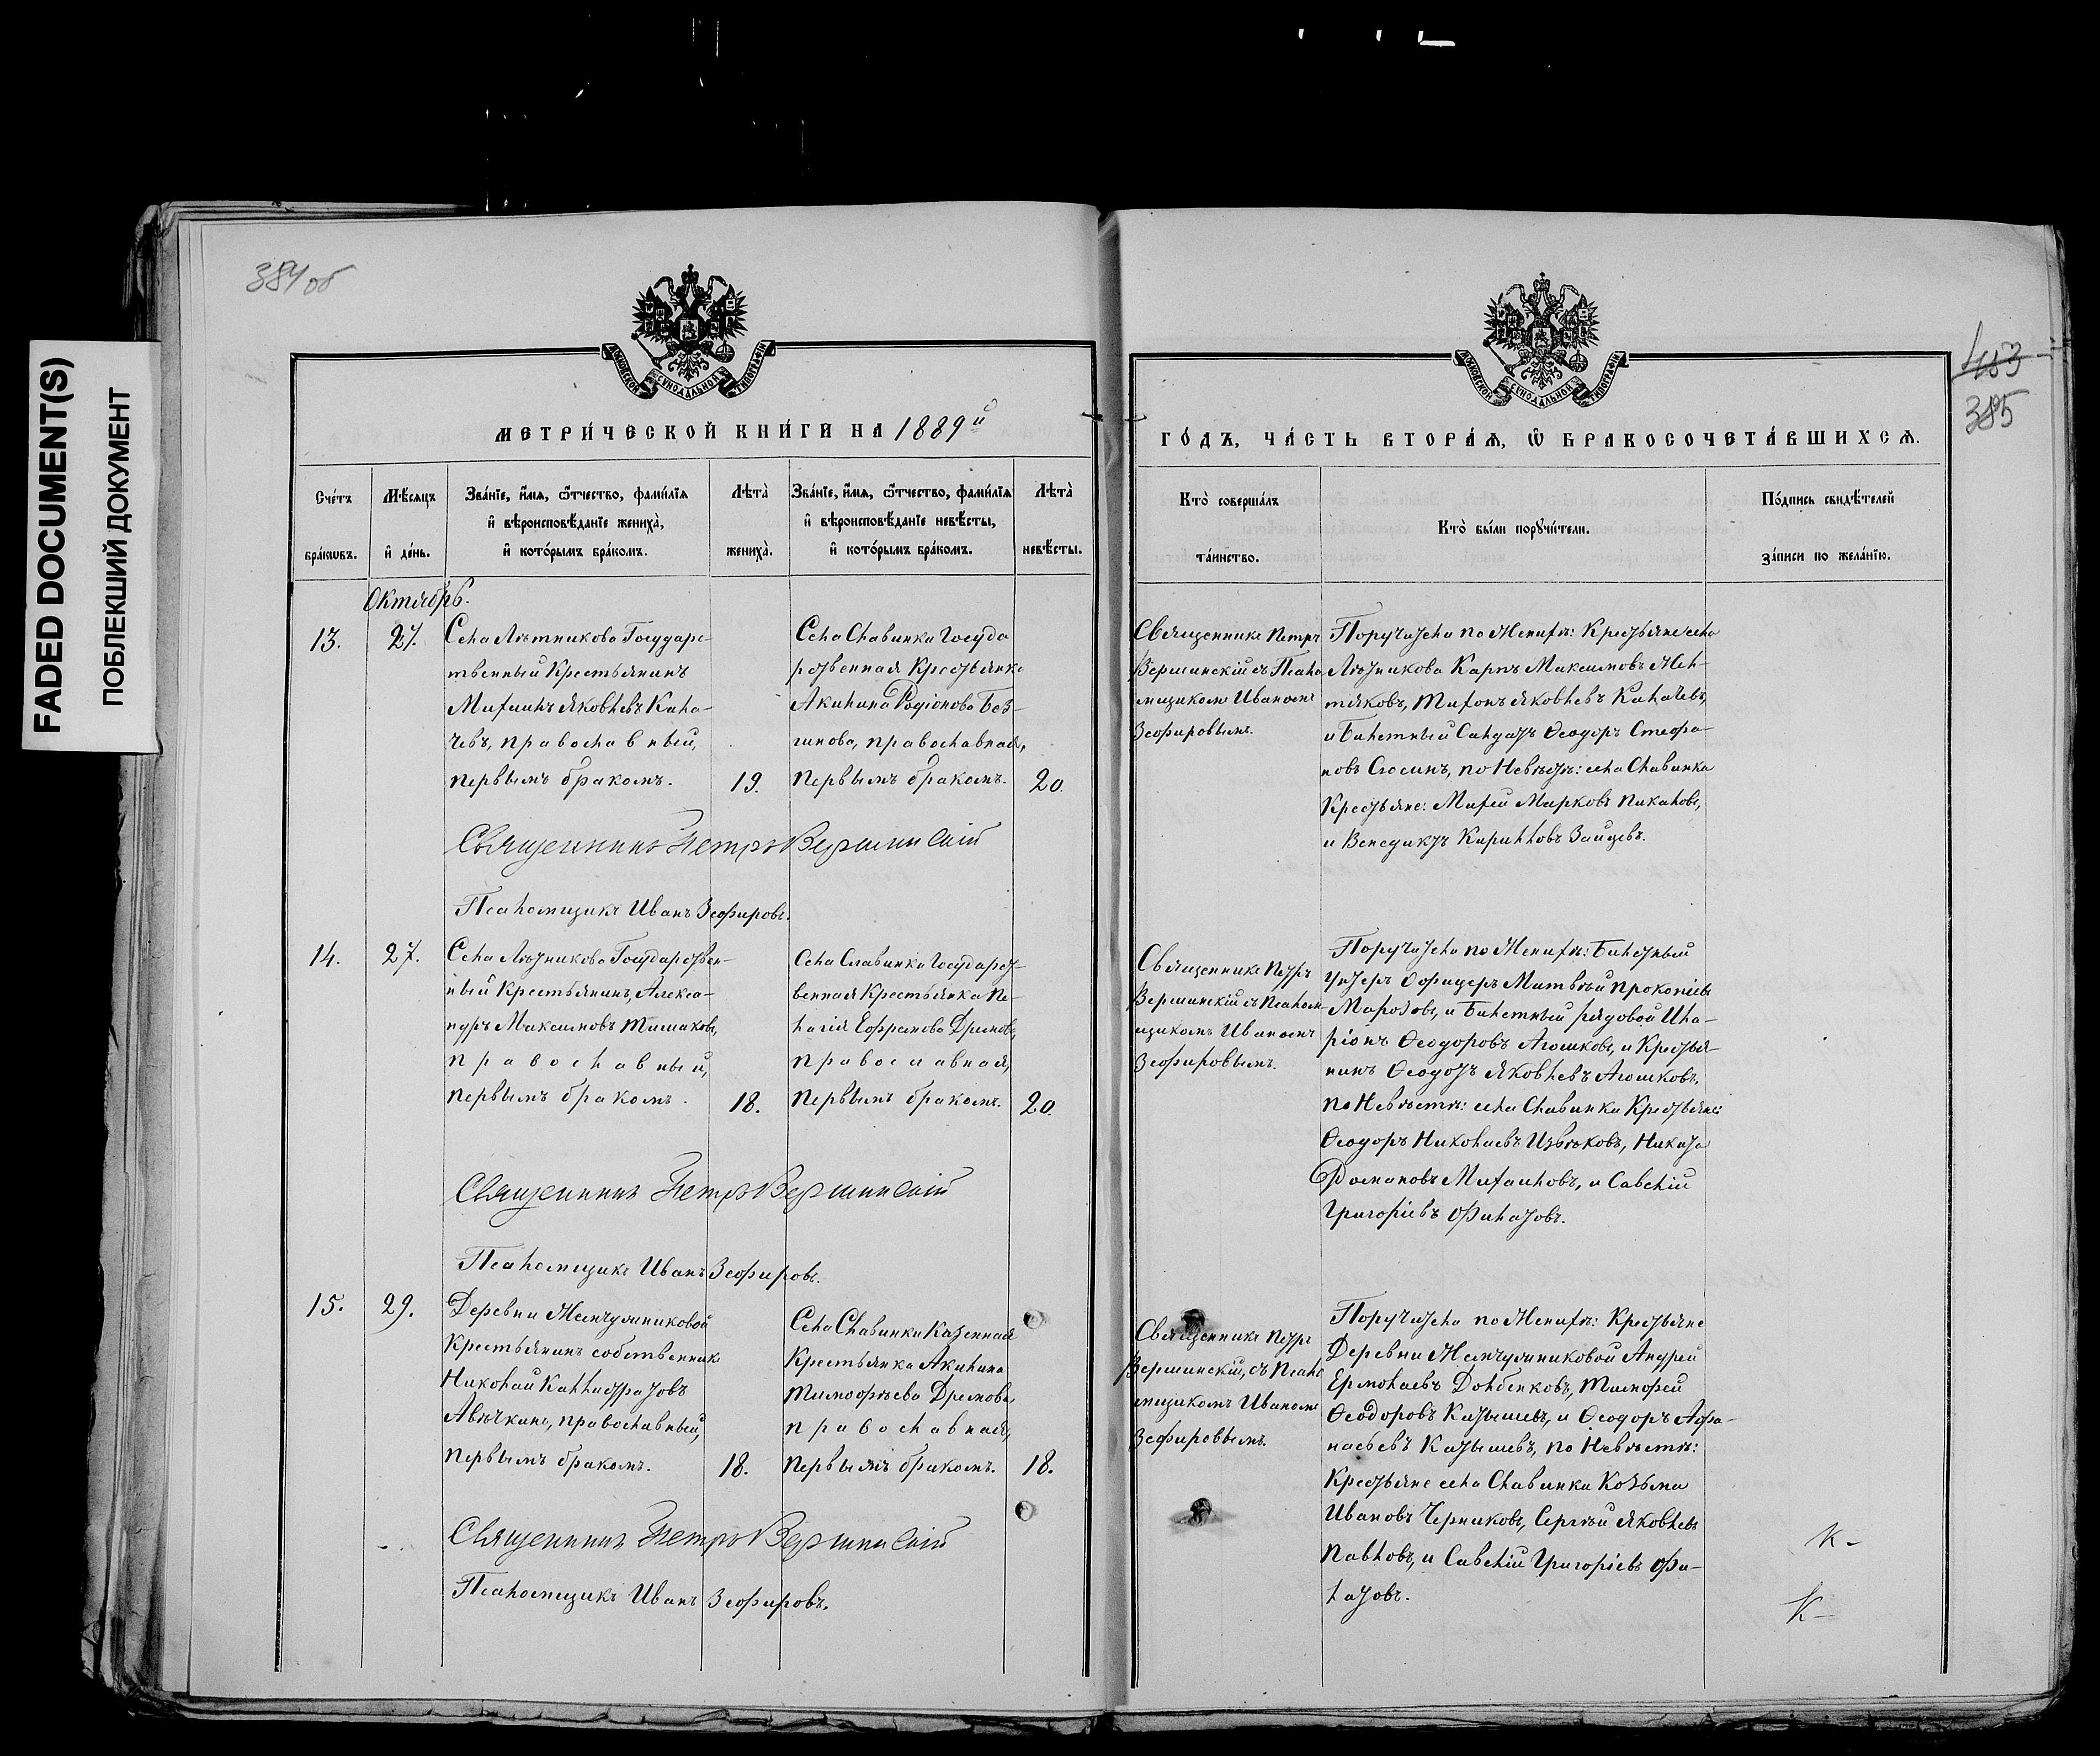 FADED DOCUMENT(S)
ПОБЛЕКШИЙ ДОКУМЕНТ
384 об
МОСКОВСКОЙ СѴНОДАЛЬНОЙ ТИПОГРАФІИ
МЕТРИ́ЧЕСКОЙ КНИ́ГИ НА 1889й
Сче́тъ бра́кѡвъ.
Мѣ́сяцъ и҆ де́нь.
Зва́нїе, и҆́мѧ, ѻ҆́тчество, фами́лїѧ
и҆ вѣроисповѣ́данїе жениха̀,
и҆ кото́рымъ бра́комъ.
Лѣта̀ жениха̀.
Зва́нїе, и҆́мѧ, ѻ҆́тчество, фами́лїѧ
и҆ вѣроисповѣ́данїе невѣ́сты,
и҆ кото́рымъ бра́комъ.
Лѣта̀ невѣ́сты.
Октябрь.
13.
27.
Села Лѣтникова Государс-
твенный Крестьянинъ
Михаилъ Яковлевъ Кила-
чевъ, православный,
первымъ бракомъ.
19.
Села Славинки Госуда
рственная Крестьянка
Акилина Родіонова Без-
гинова, православная,
первымъ бракомъ.
20.
Священникъ Петръ Вершинскій
Псаломщикъ Иванъ Зефировъ.
14.
27.
Села Лѣтникова Государствен-
ный Крестьянинъ, Алекса-
ндръ Максимовъ Тишаковъ,
православный,
первымъ бракомъ.
18.
Села Славинки Государст-
венная Крестьянка Пе-
лагія Ефремова Дремова,
православная,
первымъ бракомъ.
20.
Священникъ Петръ Вершинскій
Псаломщикъ Иванъ Зефировъ.
15.
29.
Деревни Жемчужниковой
Крестьянинъ собственникъ
Николай Каллистратовъ
Авѣчкинъ, православный,
первымъ бракомъ.
18.
Села Славинки Казенная
Крестьянка Акилина
Тимофѣева Дремова,
православная,
первымъ бракомъ.
18.
Священникъ Петръ Вершинскій
Псаломщикъ Иванъ Зефировъ.
МОСКОВСКОЙ СѴНОДАЛЬНОЙ ТИПОГРАФІИ
385
ГО́ДЪ, ЧА́СТЬ ВТОРА́Ѧ, Ѡ҆ БРАКОСОЧЕТА́ВШИХСѦ.
Кто̀ соверша́лъ
та́инство.
Кто̀ бы́ли порꙋчи́тели.
По́дпись свидѣ́телей
за́писи по жела́нїю.
Священникъ Петръ
Вершинскій съ Псало
мщикомъ Иваномъ
Зефировымъ.
Поручители по Женихѣ: Крестьяне села
Лѣтникова Карпъ Максимовъ Жел-
тяковъ, Тихонъ Яковлевъ Килачевъ,
и Билетный Солдатъ Ѳеодоръ Стефа-
новъ Сюсинъ, по Невѣстѣ: села Славинка
Крестьяне: Михей Марковъ Пикаловъ,
и Венедиктъ Кирилловъ Зайцевъ.
Священникъ Петръ
Вершинскій съ Псалом-
щикомъ Иваномъ
Зефировымъ.
Поручители по Женихѣ: Билетный
Унтеръ Офицеръ Матвѣй Прокопіевъ
Марозовъ, и Билетный рядовой Ила-
ріонъ Ѳеодоровъ Агошковъ, и Крестья-
нинъ Ѳеодотъ Яковлевъ Агошковъ,
по Невѣстѣ: села Славинки Крестьяне:
Ѳеодоръ Николаевъ Извѣковъ, Никита
Романовъ Михайловъ, и Савелій
Григоріевъ Филатовъ.
Священникъ Петръ
Вершинскій, съ Псало
мщикомъ Иваномъ
Зефировымъ.
Поручители по Женихѣ: Крестьяне
Деревни Жемчужниковой Андрей
Ермолаевъ Долбенковъ, Тимофей
Ѳеодоровъ Катышевъ, и Ѳеодоръ Афа-
насьевъ Катышевъ, по Невѣстѣ:
Крестьяне села Славинки Козьма
Ивановъ Черниковъ, Сергѣй Яковлевъ
Павловъ, и Савелій Григоріевъ Фи-
латовъ.
К-
К-